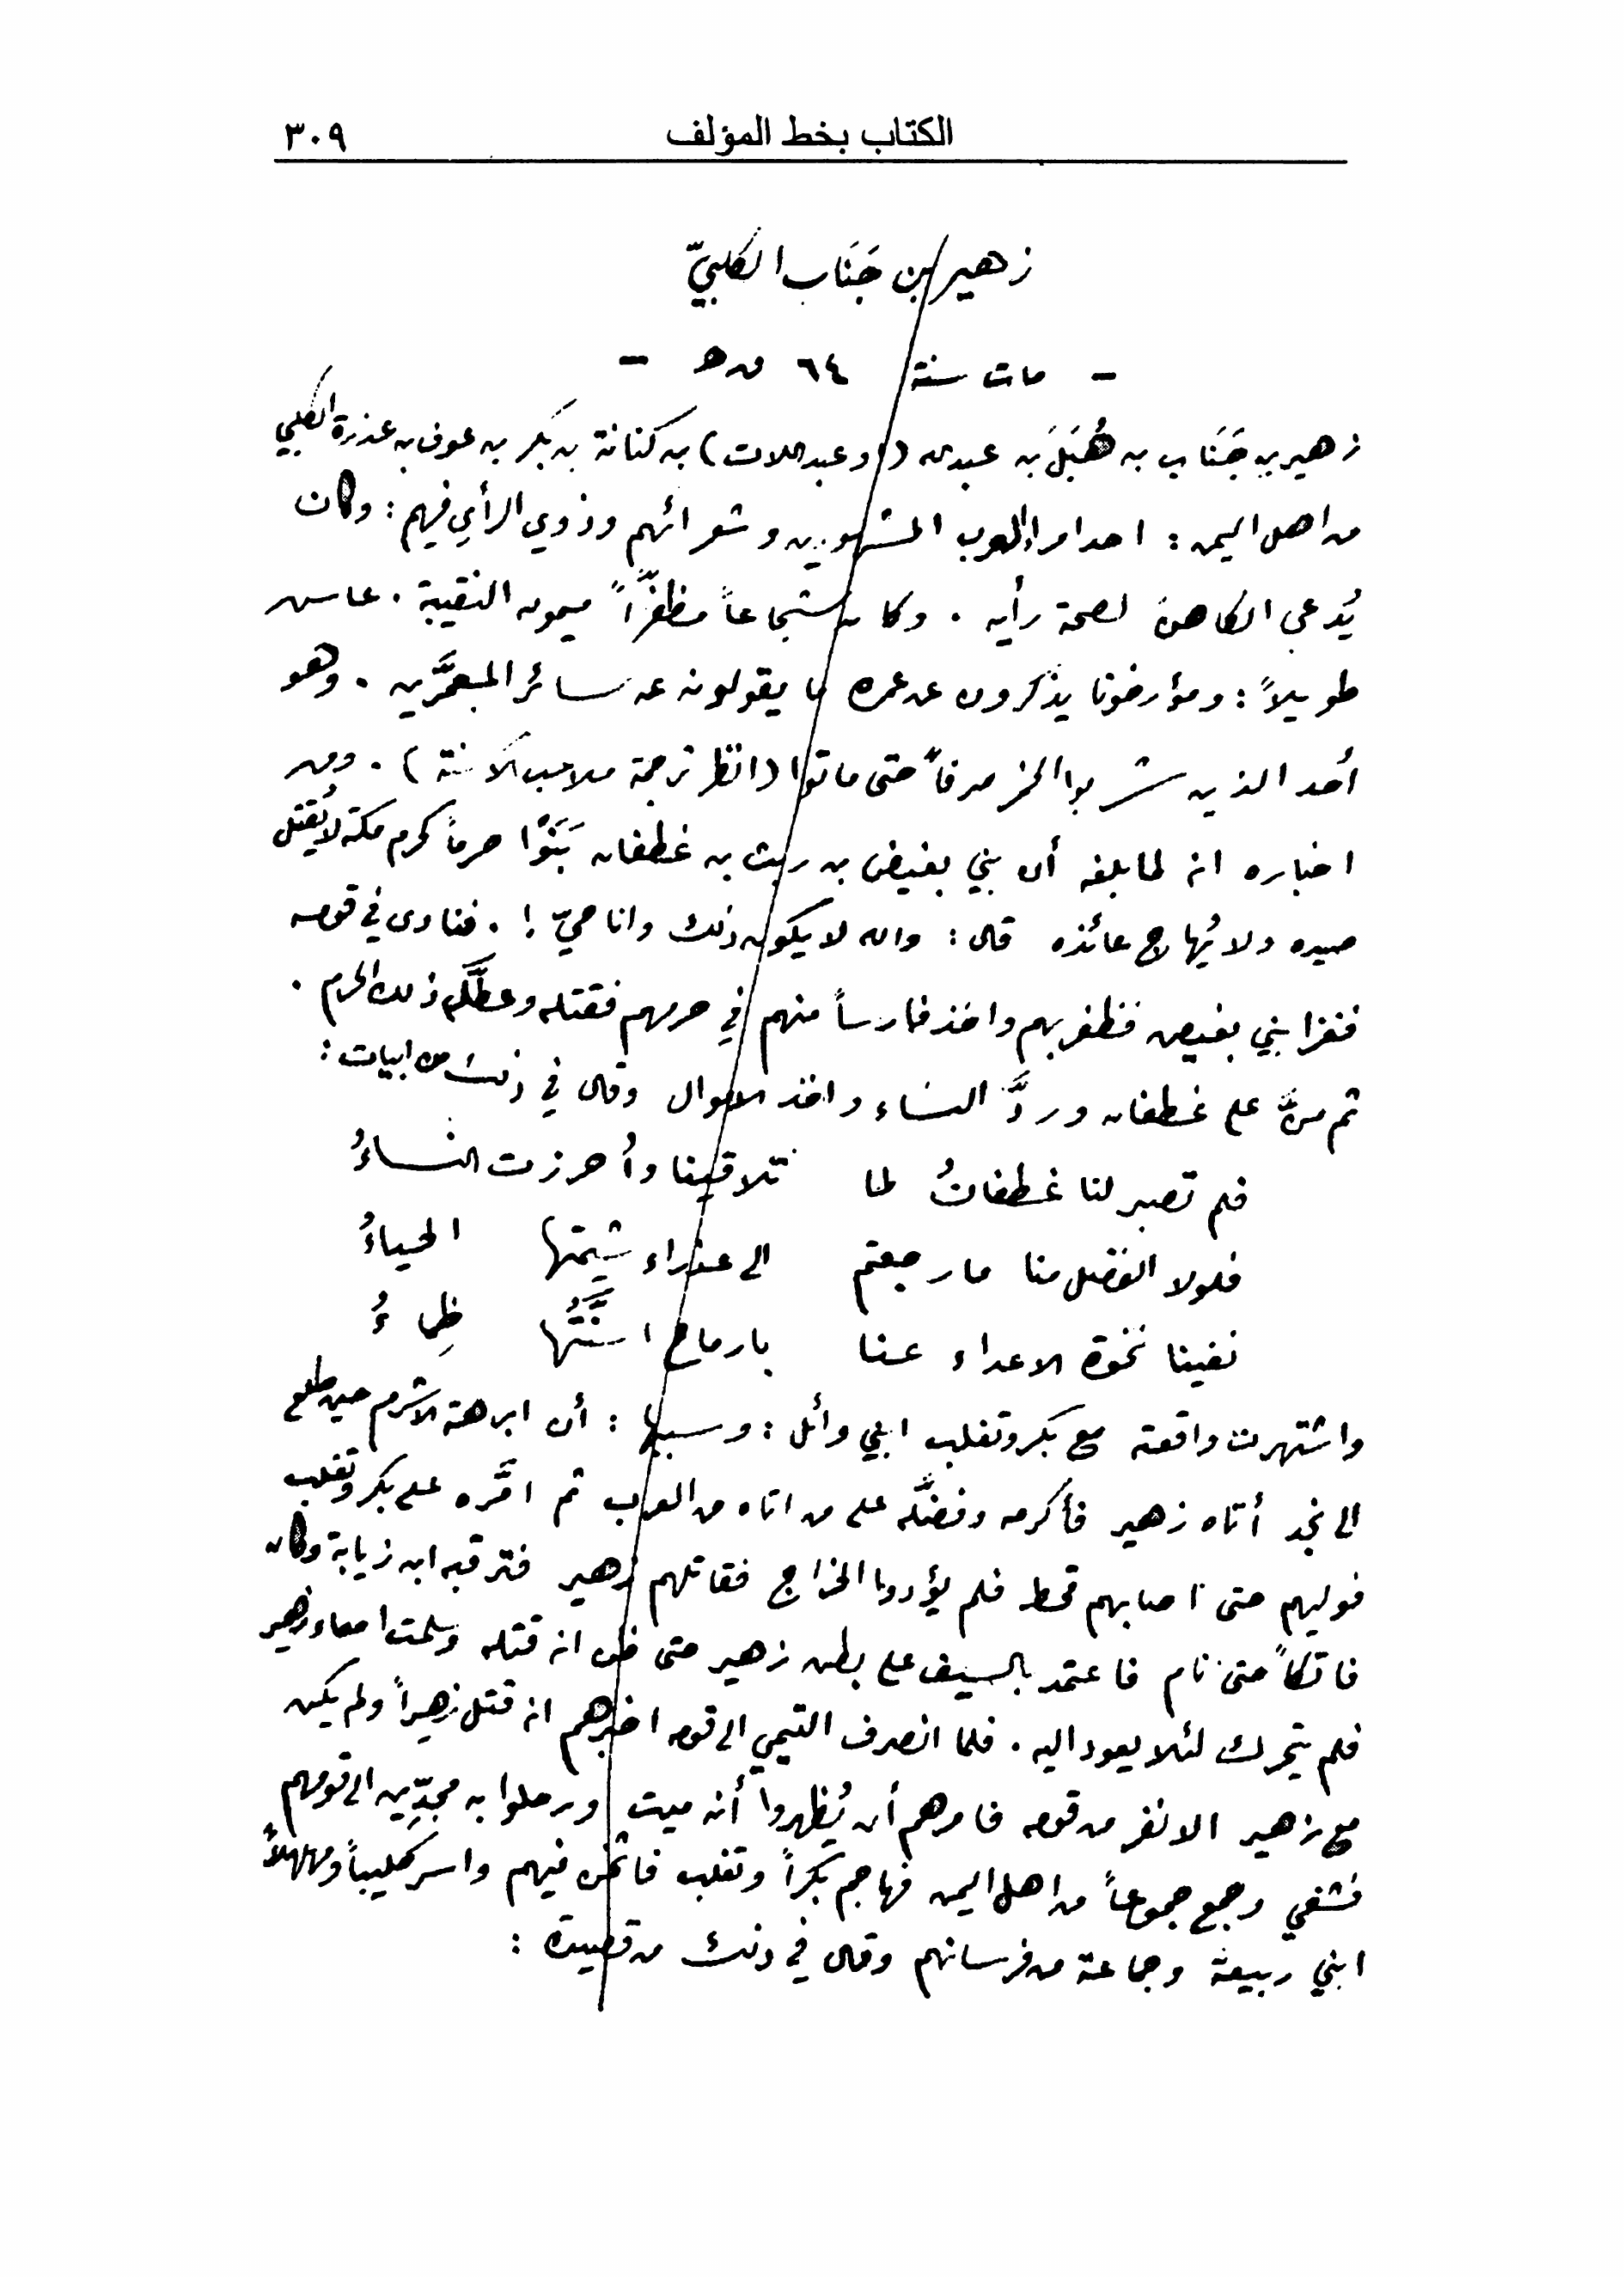 الكتاب بخط المؤلف ٣٠٩
زهير بن جَنَاب الكلبيّ
- مات سنة ٦٤ ق ه -
زهير بن جَنَاب بن هُبَلَ بن عبدالله (او عبد اللات) بن كنانة بن بكر بن عوف بن عذرة الكلبي
من اهل اليمن : احد امراء العرب المشهورين وشعرائهم وذوي الرأي فيهم : وكان
يُدعى الكاهنَ لصحة رأيه . وكان شجاعاً مظفّراً ميمون النقيبة . عاش
طويلاً : ومؤرخونا يذكرون عن عمره ما يقولونه عن سائر المعمَّرين . وهو
أحد الذين شربوا الخمر صرفاً حتى ماتوا (انظر ترجمة ملاعب الأسنة) . ومن
اخباره انه لما بلغه أن بني بغيض بن ريث بن غطفان بَنَوْا حرماً كحرم مكة لا يُقتل
صيده ولا يُهاج عائذه قال : والله لا يكون ذلك وانا حيّ ! . فنادى في قومه
فغزا بني بغيض فظفر بهم واخذ فارساً منهم في حرمهم فقتله وعطَّل ذلك الحرم .
ثم منَّ على غطفان وردَّ النساء واخذ الاموال وقال في ذلك من ابيات :
فلم تصبر لنا غطفانُ لما تلاقينا وأُحرزت النساءُ
فلولا الفضل منا ما رجعتم الى عذراء شيمتها الحياءُ
نفينا نخوة الاعداء عنا بارماح اسنَّتُها ظِماءُ
واشتهرت واقعته مع بكر وتغلب ابني وائل : وسببها : أن ابرهة الاشرم حين طلع
الى نجد أتاه زهير فأكرمه وفضَّله على من اتاه من العرب ثم امَّره على بكر وتغلب
فوليهم حتى اصابهم قحط فلم يؤدوا الخراج فقاتلهم زهير فترقبه ابن زيابة وكان
فاتكاً حتى نام فاعتمد بالسيف على بطن زهير حتى ظن انه قتله وسلمت امعاء زهير
فلم يتحرك لئلا يعود اليه . فلما انصرف التيمي الى قومه اخبرهم انه قتل زهيراً ولم يكن
مع زهير الا نفر من قومه فامرهم أن يُظهروا أنه ميت ورحلوا به مجدِّين الى قومهم
فشفي وجمع جموعاً من اهل اليمن فهاجم بكراً وتغلب فاثخن فيهم واسر كليباً ومهلهلاً
ابني ربيعة وجماعة من فرسانهم وقال في ذلك من قصيدة :